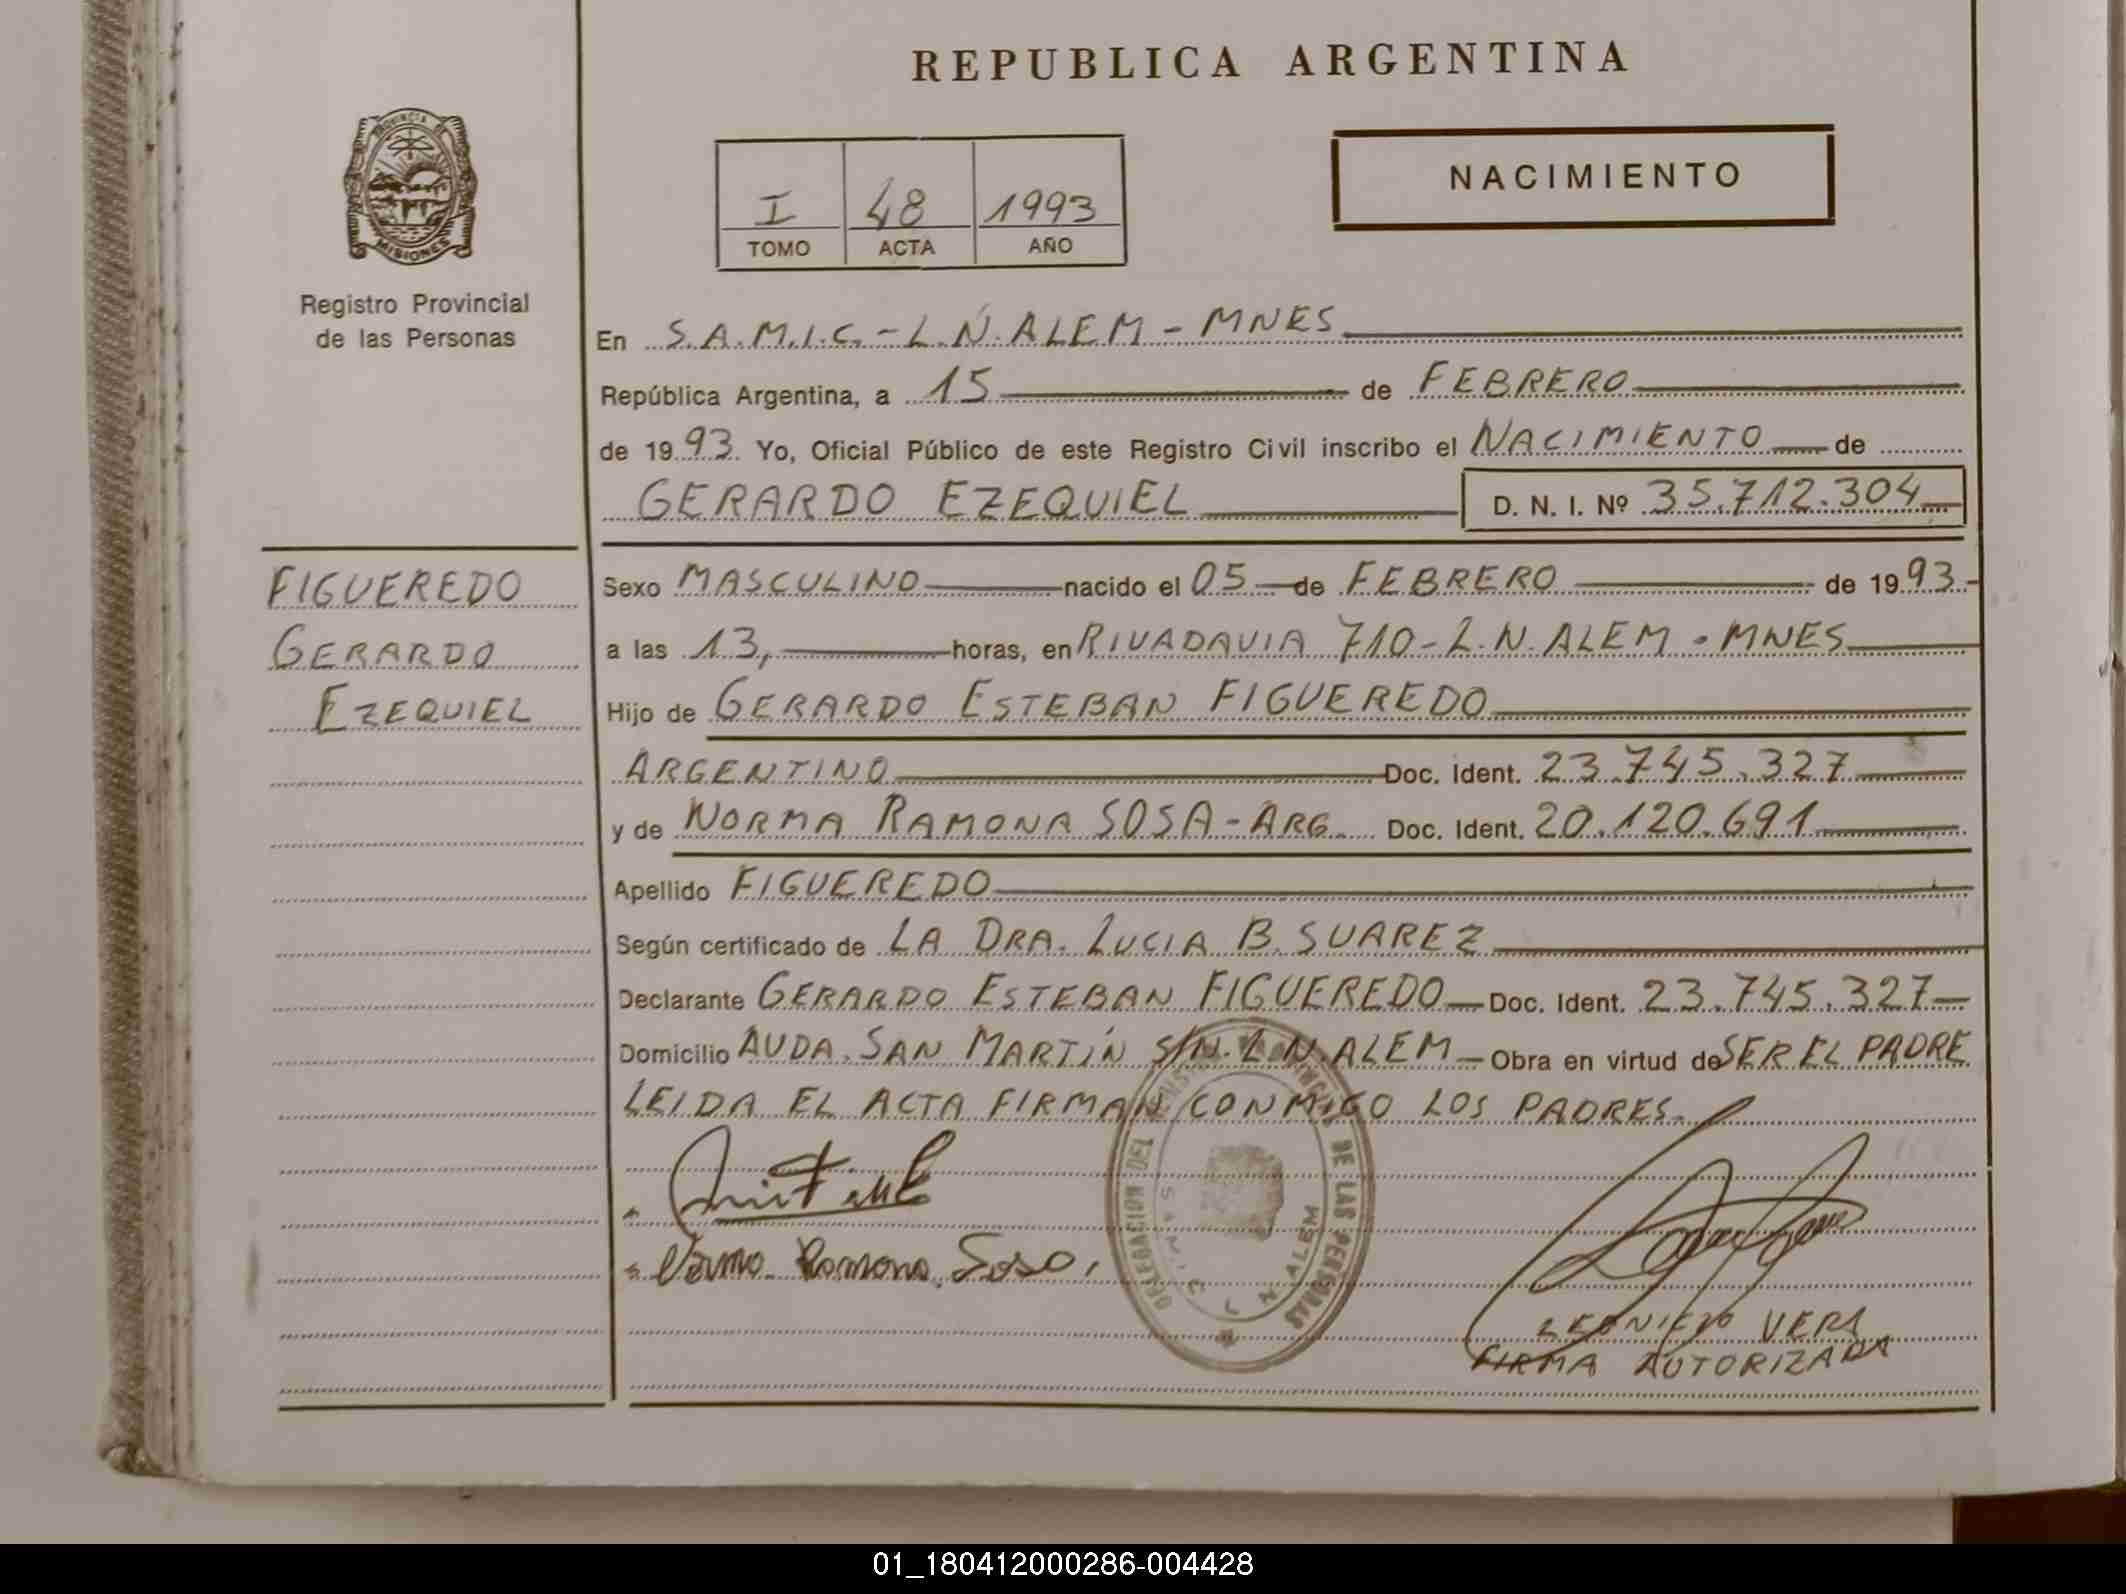 REPUBLICA ARGENTINA
PROVINCIA DE
MISIONES
Registro Provincial
de las Personas
I 48 1993
TOMO ACTA AÑO
NACIMIENTO
En S.A.M.I.C. - L.N. ALEM - MNES
República Argentina, a 15 de FEBRERO
de 1993. Yo, Oficial Público de este Registro Civil inscribo el NACIMIENTO de
GERARDO EZEQUIEL D. N. I. Nº 35.712.304
FIGUEREDO
GERARDO
EZEQUIEL
Sexo MASCULINO nacido el 05 de FEBRERO de 1993.-
a las 13, horas, en RIVADAVIA 710 - L.N. ALEM - MNES
Hijo de GERARDO ESTEBAN FIGUEREDO
ARGENTINO Doc. Ident. 23.745.327
y de NORMA RAMONA SOSA - ARG. Doc. Ident. 20.120.691
Apellido FIGUEREDO
Según certificado de LA DRA. LUCIA B. SUAREZ
Declarante GERARDO ESTEBAN FIGUEREDO Doc. Ident. 23.745.327
Domicilio AVDA. SAN MARTÍN S/N. L.N. ALEM Obra en virtud de SER EL PADRE
LEIDA EL ACTA FIRMAN CONMIGO LOS PADRES.
Norma Ramona Sosa
DELEGACION DEL DE LAS PERSONAS
L N ALEM
VERA
FIRMA AUTORIZADA
01_180412000286-004428